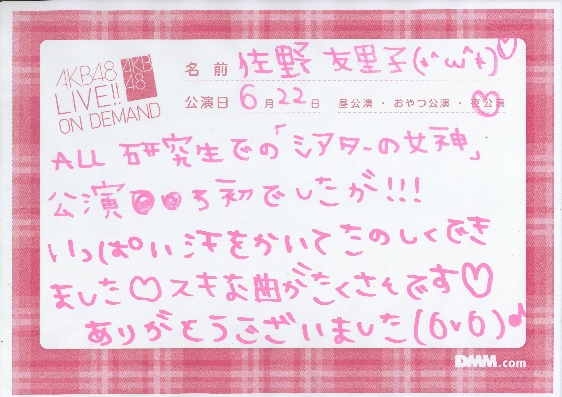 AKB48
LIVE!!
ON DEMAND
AKB
48
名前 佐野 友里子(*^ω^*)♡
公演日 6月22日 昼公演・おやつ公演・夜公演
ALL 研究生での「シアターの女神」
公演●●ち初でしたが!!!
いっぱい汗をかいてたのしくでき
ました♡スキな曲がたくさんです♡
ありがとうございました(òvó)♪
DMM.com